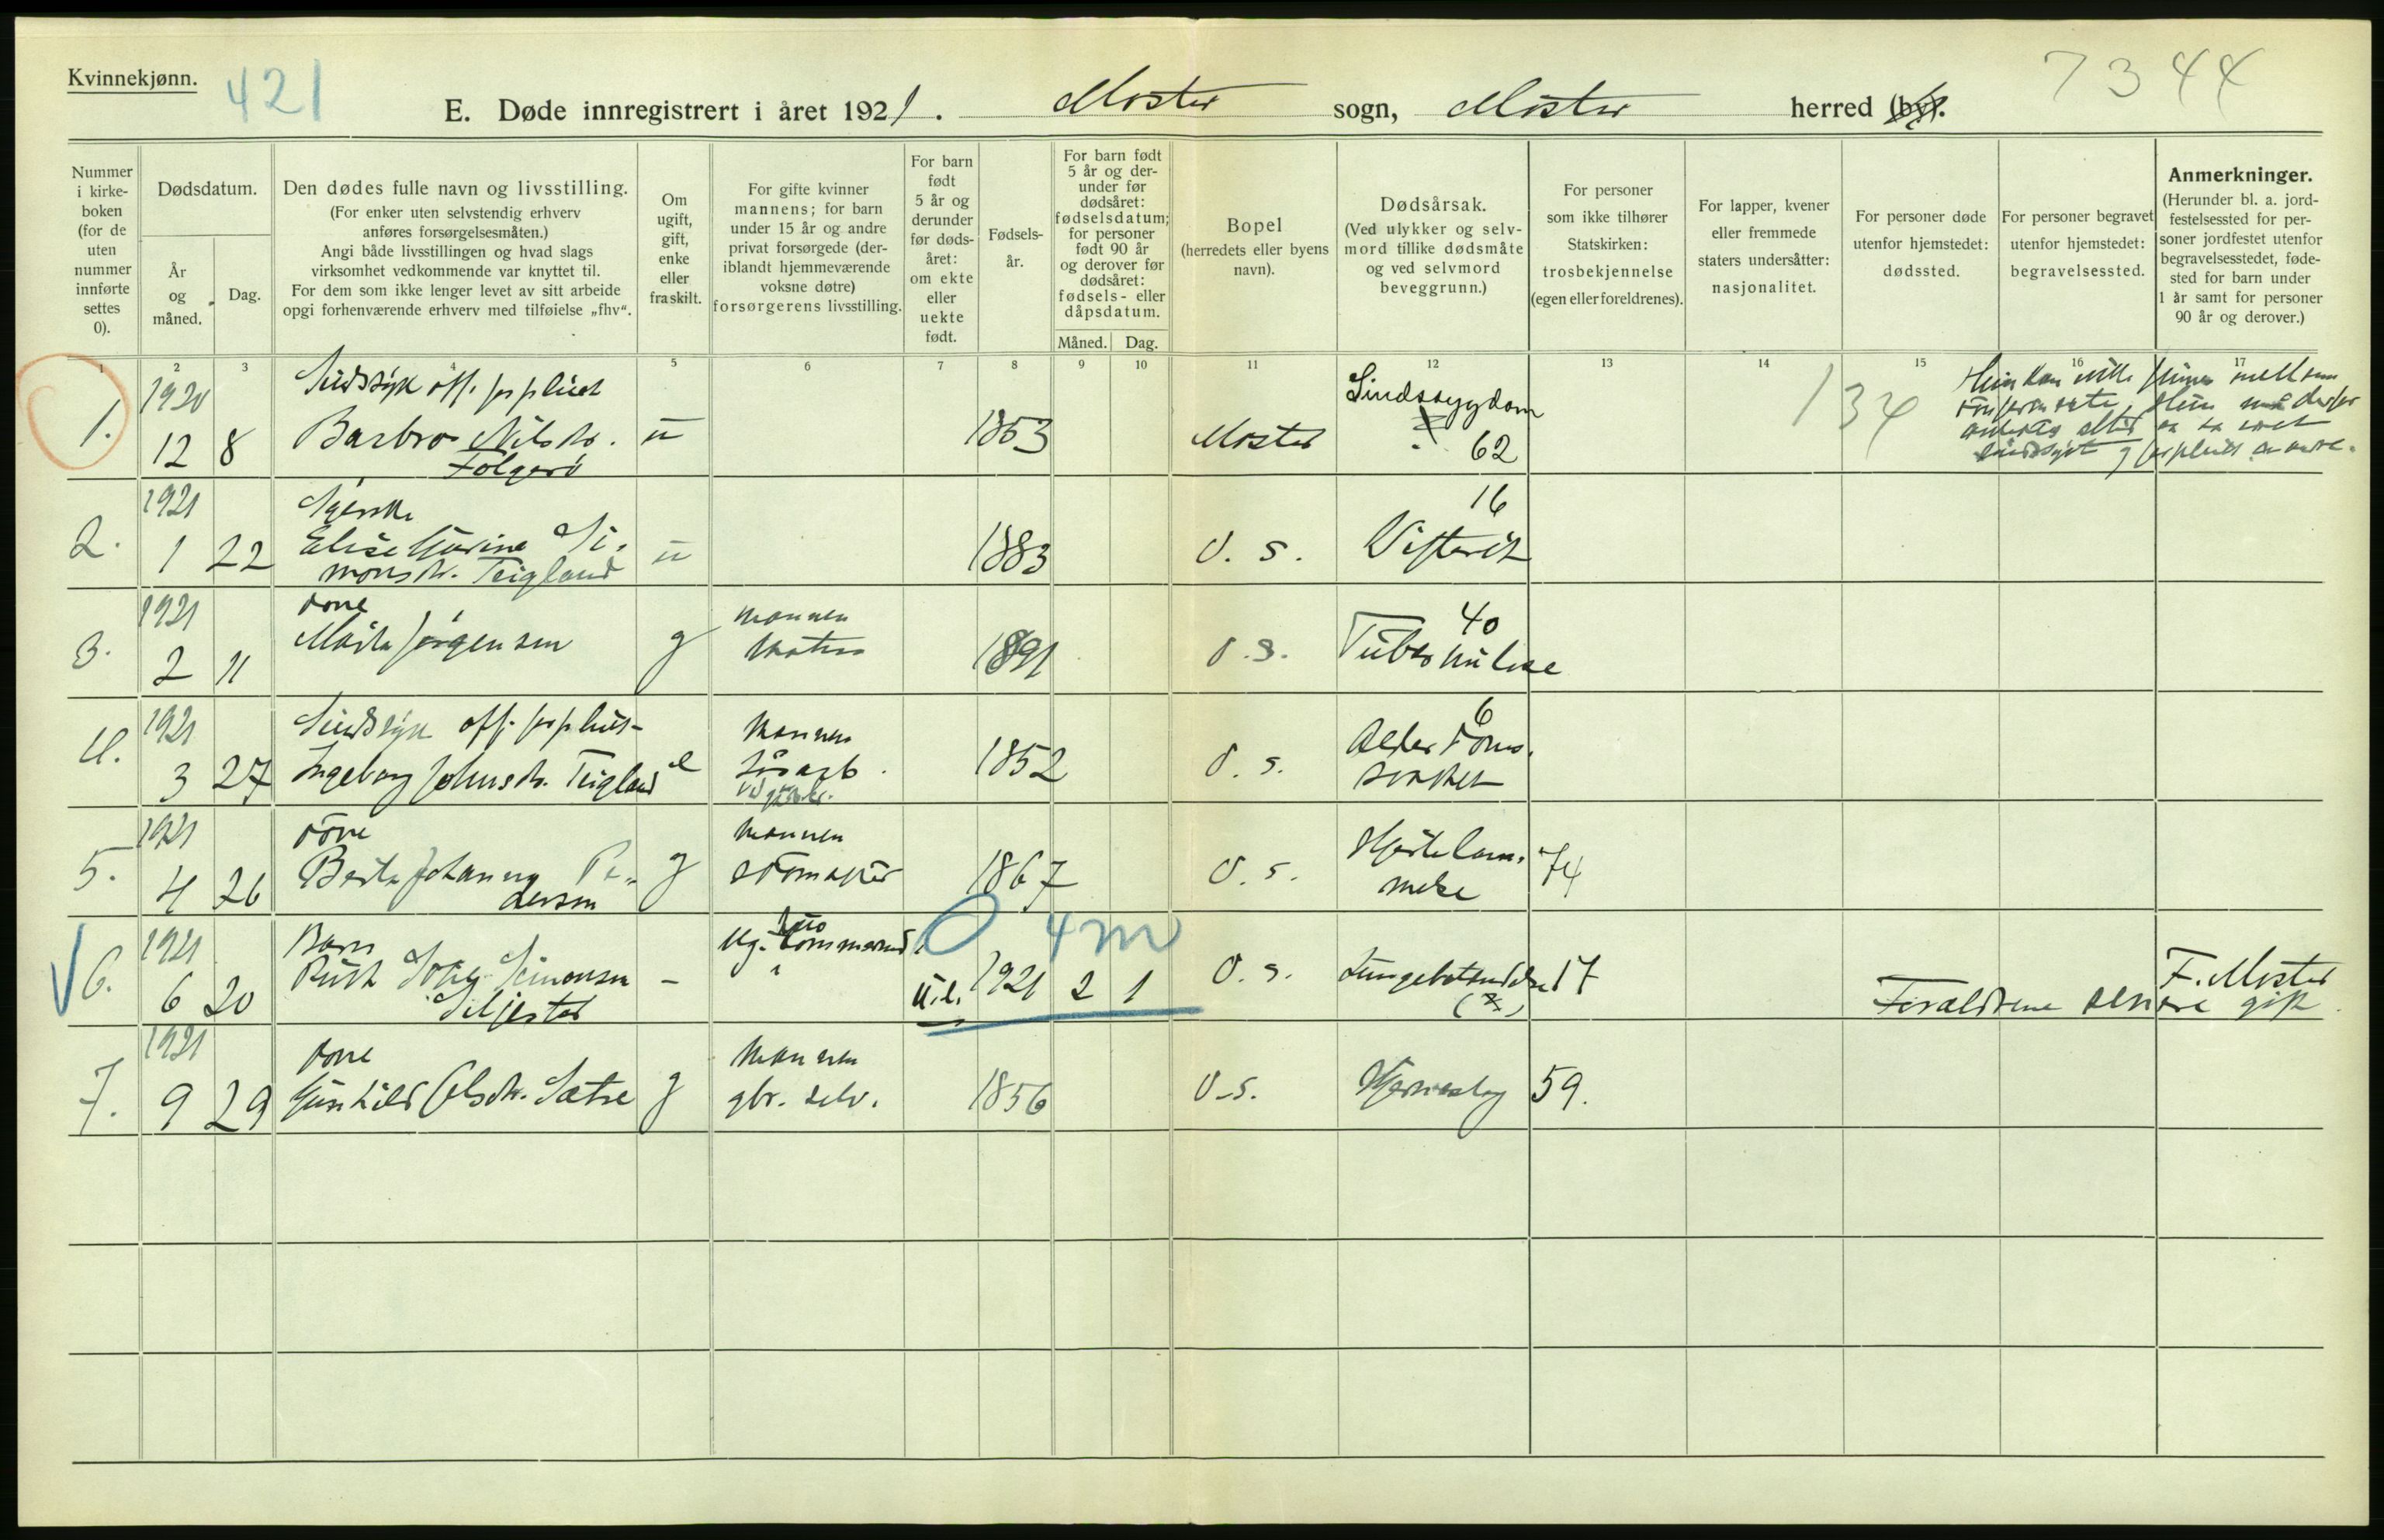 Kvinnekjønn.
421
7344
E. Døde innregistrert i året 1921. Moster sogn, Moster herred (by).
Nummer
i kirke-
boken
(for de
uten
nummer
innførte
settes
0).
Dødsdatum.
År
og
måned.
Dag.
Den dødes fulle navn og livsstilling.
(For enker uten selvstendig erhverv
anføres forsørgelsesmåten.)
Angi både livsstillingen og hvad slags
virksomhet vedkommende var knyttet til.
For dem som ikke lenger levet av sitt arbeide
opgi forhenværende erhverv med tilføielse „fhv“.
Om
ugift,
gift,
enke
eller
fraskilt.
For gifte kvinner
mannens; for barn
under 15 år og andre
privat forsørgede (der-
iblandt hjemmeværende
voksne døtre)
forsørgerens livsstilling.
For barn
født
5 år og
derunder
før døds-
året:
om ekte
eller
uekte
født.
Fødsels-
år.
For barn født
5 år og der-
under før
dødsåret:
fødselsdatum;
for personer
født 90 år
og derover før
dødsåret:
fødsels- eller
dåpsdatum.
Måned. Dag.
Bopel
(herredets eller byens
navn).
Dødsårsak.
(Ved ulykker og selv-
mord tillike dødsmåte
og ved selvmord
beveggrunn.)
For personer
som ikke tilhører
Statskirken:
trosbekjennelse
(egen eller foreldrenes).
For lapper, kvener
eller fremmede
staters undersåtter:
nasjonalitet.
For personer døde
utenfor hjemstedet:
dødssted.
For personer begravet
utenfor hjemstedet:
begravelsessted.
Anmerkninger.
(Herunder bl. a. jord-
festelsessted for per-
soner jordfestet utenfor
begravelsesstedet, føde-
sted for barn under
1 år samt for personer
90 år og derover.)
1 2 3 4 5 6 7 8 9 10 11 12 13 14 15 16 17
1920 Sindssyk off. forpleiet Sindssygdom
1. 12 8 Barbro Nilsdr. u 1853 Moster 62 134
Følgerø
1921 16
2. 1 22 Elise Gurine Si- u 1883 d. s.
monsdr. Teigland
1921 kone mannen 40
3. 2 11 Marta Jørgensen g 1891 d. s. Tuberkulose
1921 Sindssyk off. forpleiet mannen 6
4. 3 27 Ingeborg Johnsdr. Teigland e løsarb. 1852 d. s. Alderdoms-
svakhet
1921 kone mannen Hjertelam-
5. 4 26 Berta Johanna Pe- g skomaker 1867 d. s. melse 74
dersen
1921 Barn 0 4m
6. 6 20 Ruth Simonsen - U.e. 1921 2 1 d. s. Lungebetendelse 17 F. Moster
Siljestøl Foreldrene senere gift
1921 kone mannen
7. 9 29 Gunhild Olsdr. Sætre g gbr. selv. 1856 d. s. Hjerneslag 59.